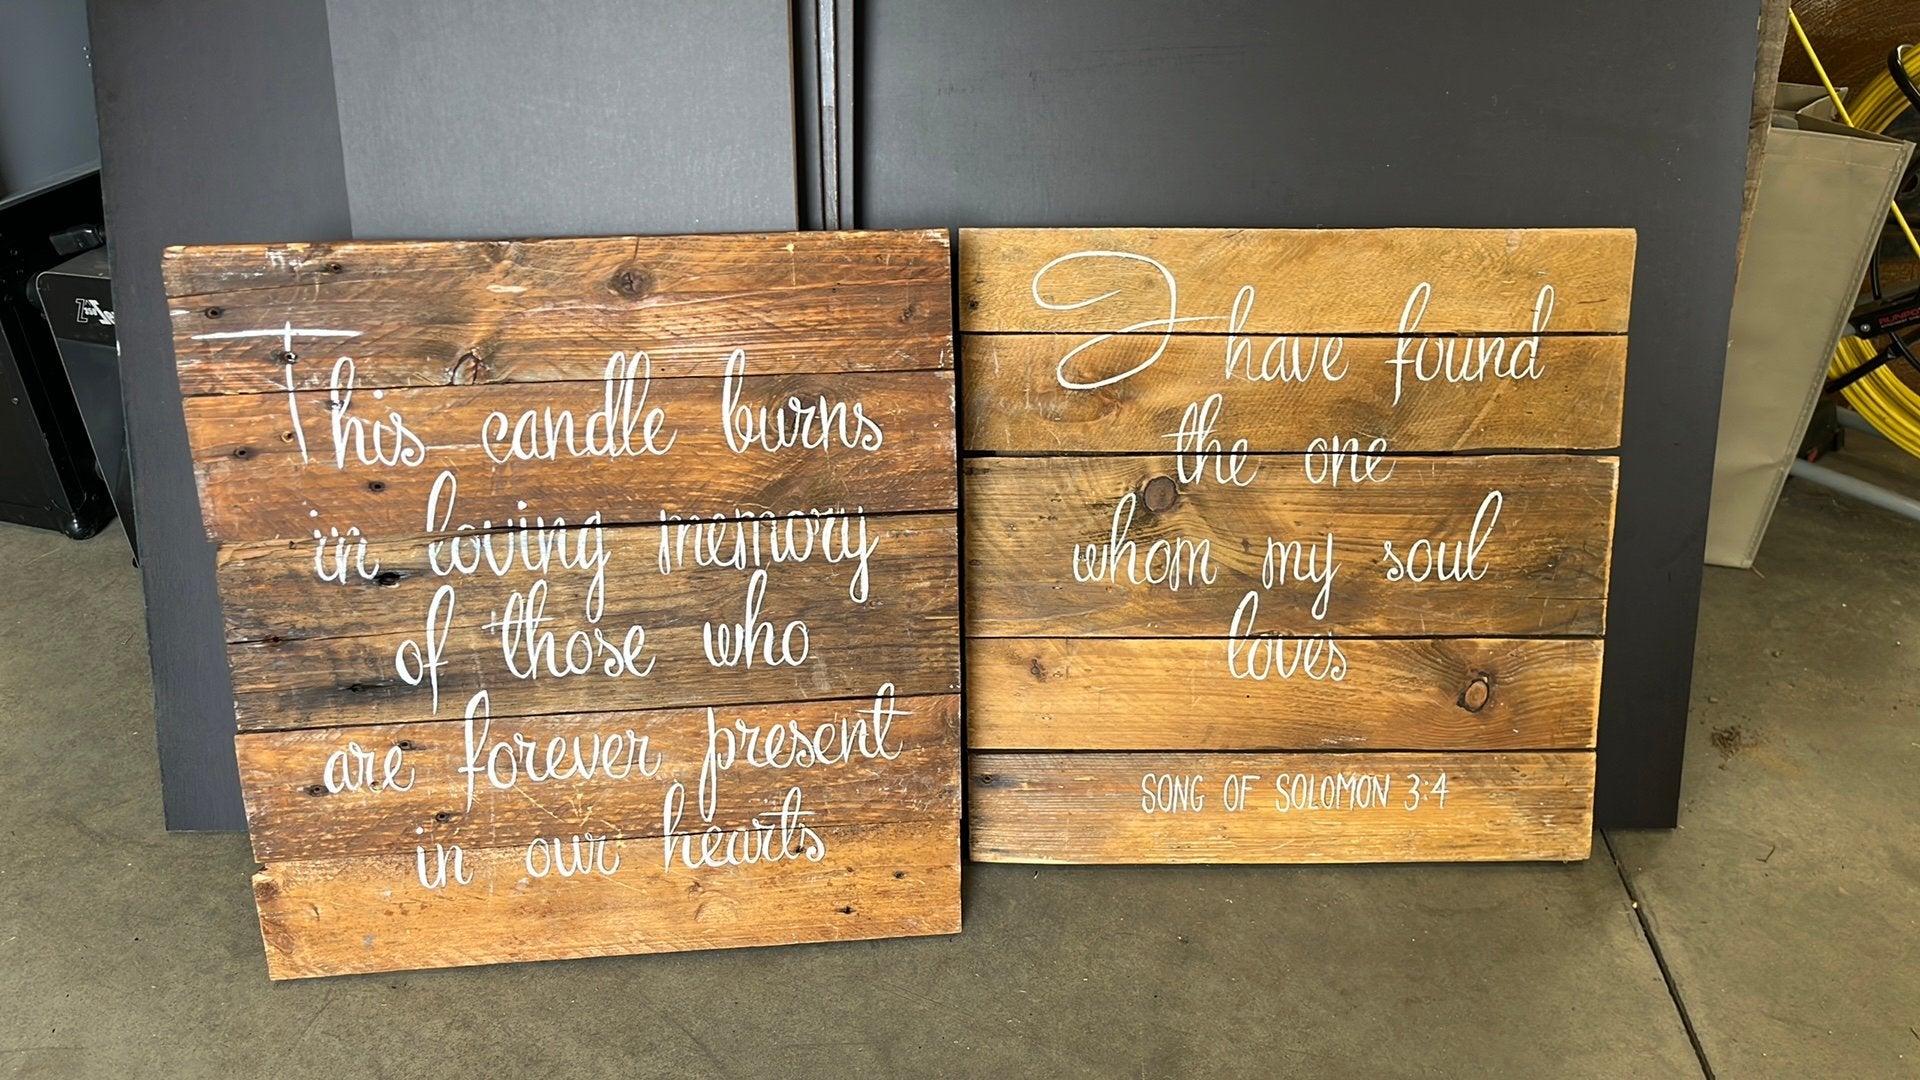 This candle burns
in loving memory
of those who
are forever present
in our hearts
I have found
the one
whom my soul
loves
SONG OF SOLOMON 3:4